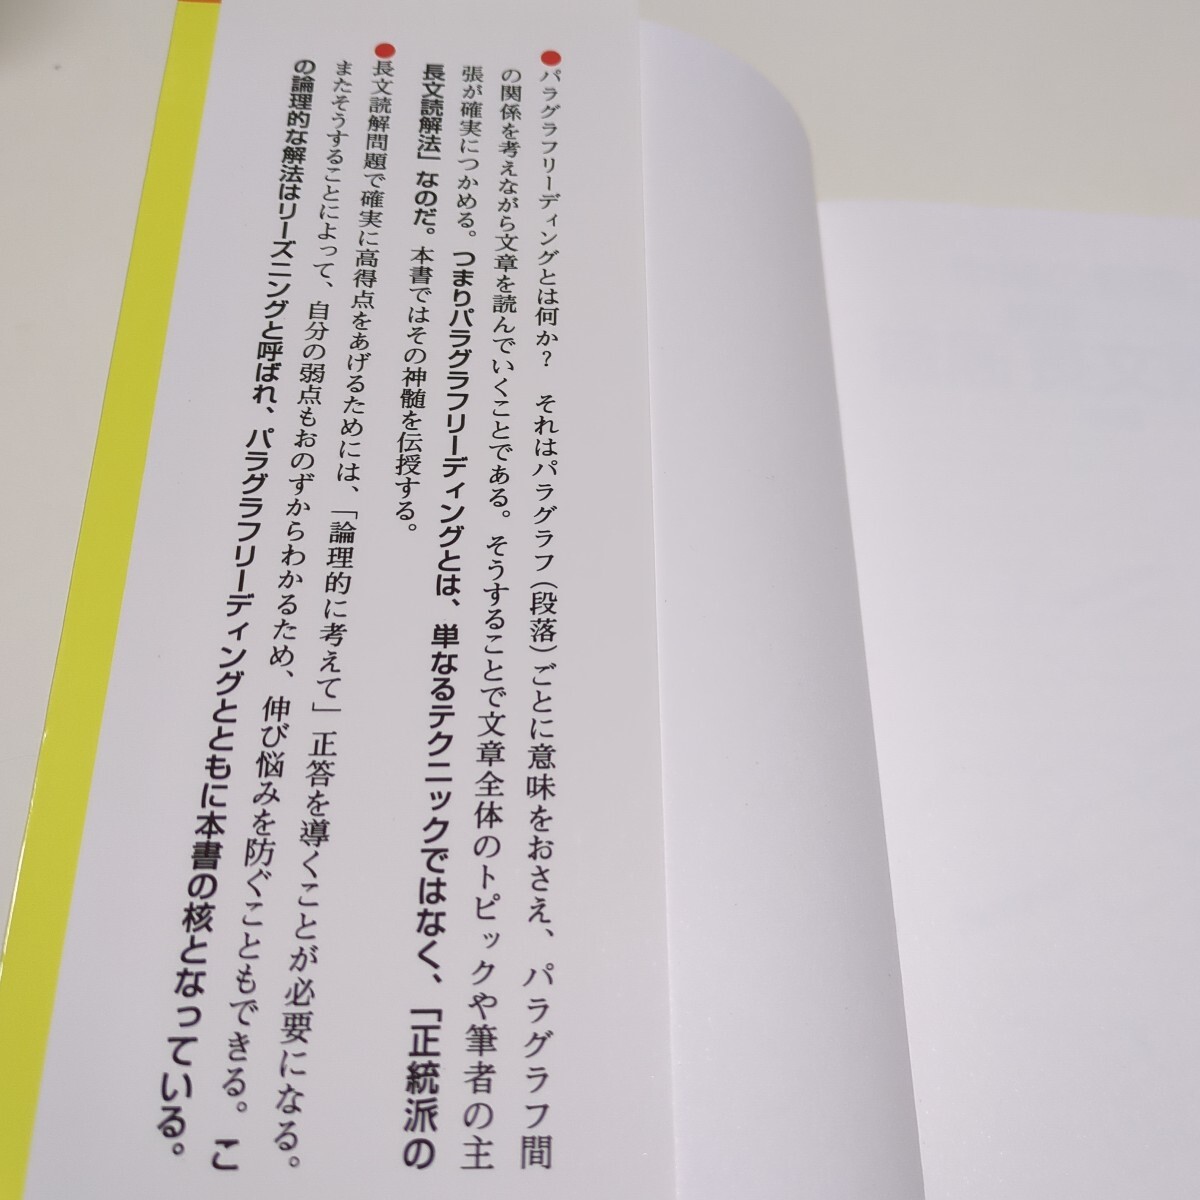 ●パラグラフリーディングとは何か？　それはパラグラフ（段落）ごとに意味をおさえ、パラグラフ間
の関係を考えながら文章を読んでいくことである。そうすることで文章全体のトピックや筆者の主
張が確実につかめる。つまりパラグラフリーディングとは、単なるテクニックではなく、「正統派の
長文読解法」なのだ。本書ではその神髄を伝授する。
●長文読解問題で確実に高得点をあげるためには、「論理的に考えて」正答を導くことが必要になる。
またそうすることによって、自分の弱点もおのずからわかるため、伸び悩みを防ぐこともできる。こ
の論理的な解法はリーズニングと呼ばれ、パラグラフリーディングとともに本書の核となっている。